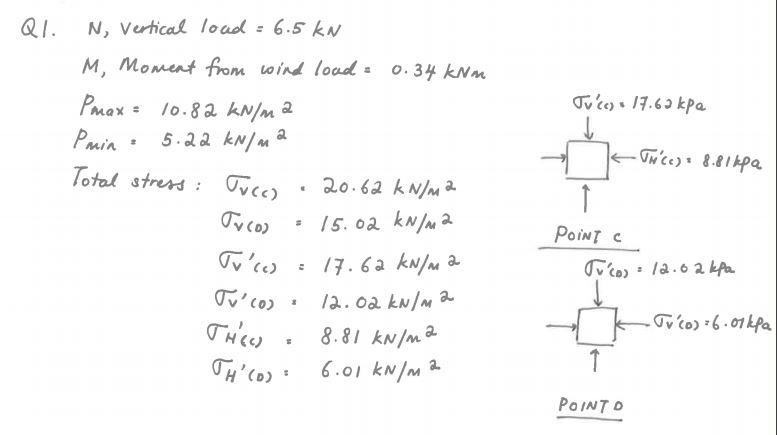 Q1. N, vertical load = 6.5 kN
M, Moment from wind load = 0.34 kNm
Pmax = 10.82 kN/m2
Pmin = 5.22 kN/m2
Total stress : σv(c) = 20.62 kN/m2
σv(D) = 15.02 kN/m2
σv'(c) = 17.62 kN/m2
σv'(D) = 12.02 kN/m2
σH'(c) = 8.81 kN/m2
σH'(D) = 6.01 kN/m2
σv'(c) = 17.62 kPa
σH'(c) = 8.81 kPa
POINT C
σv'(D) = 12.02 kPa
σv'(D) = 6.01 kPa
POINT D